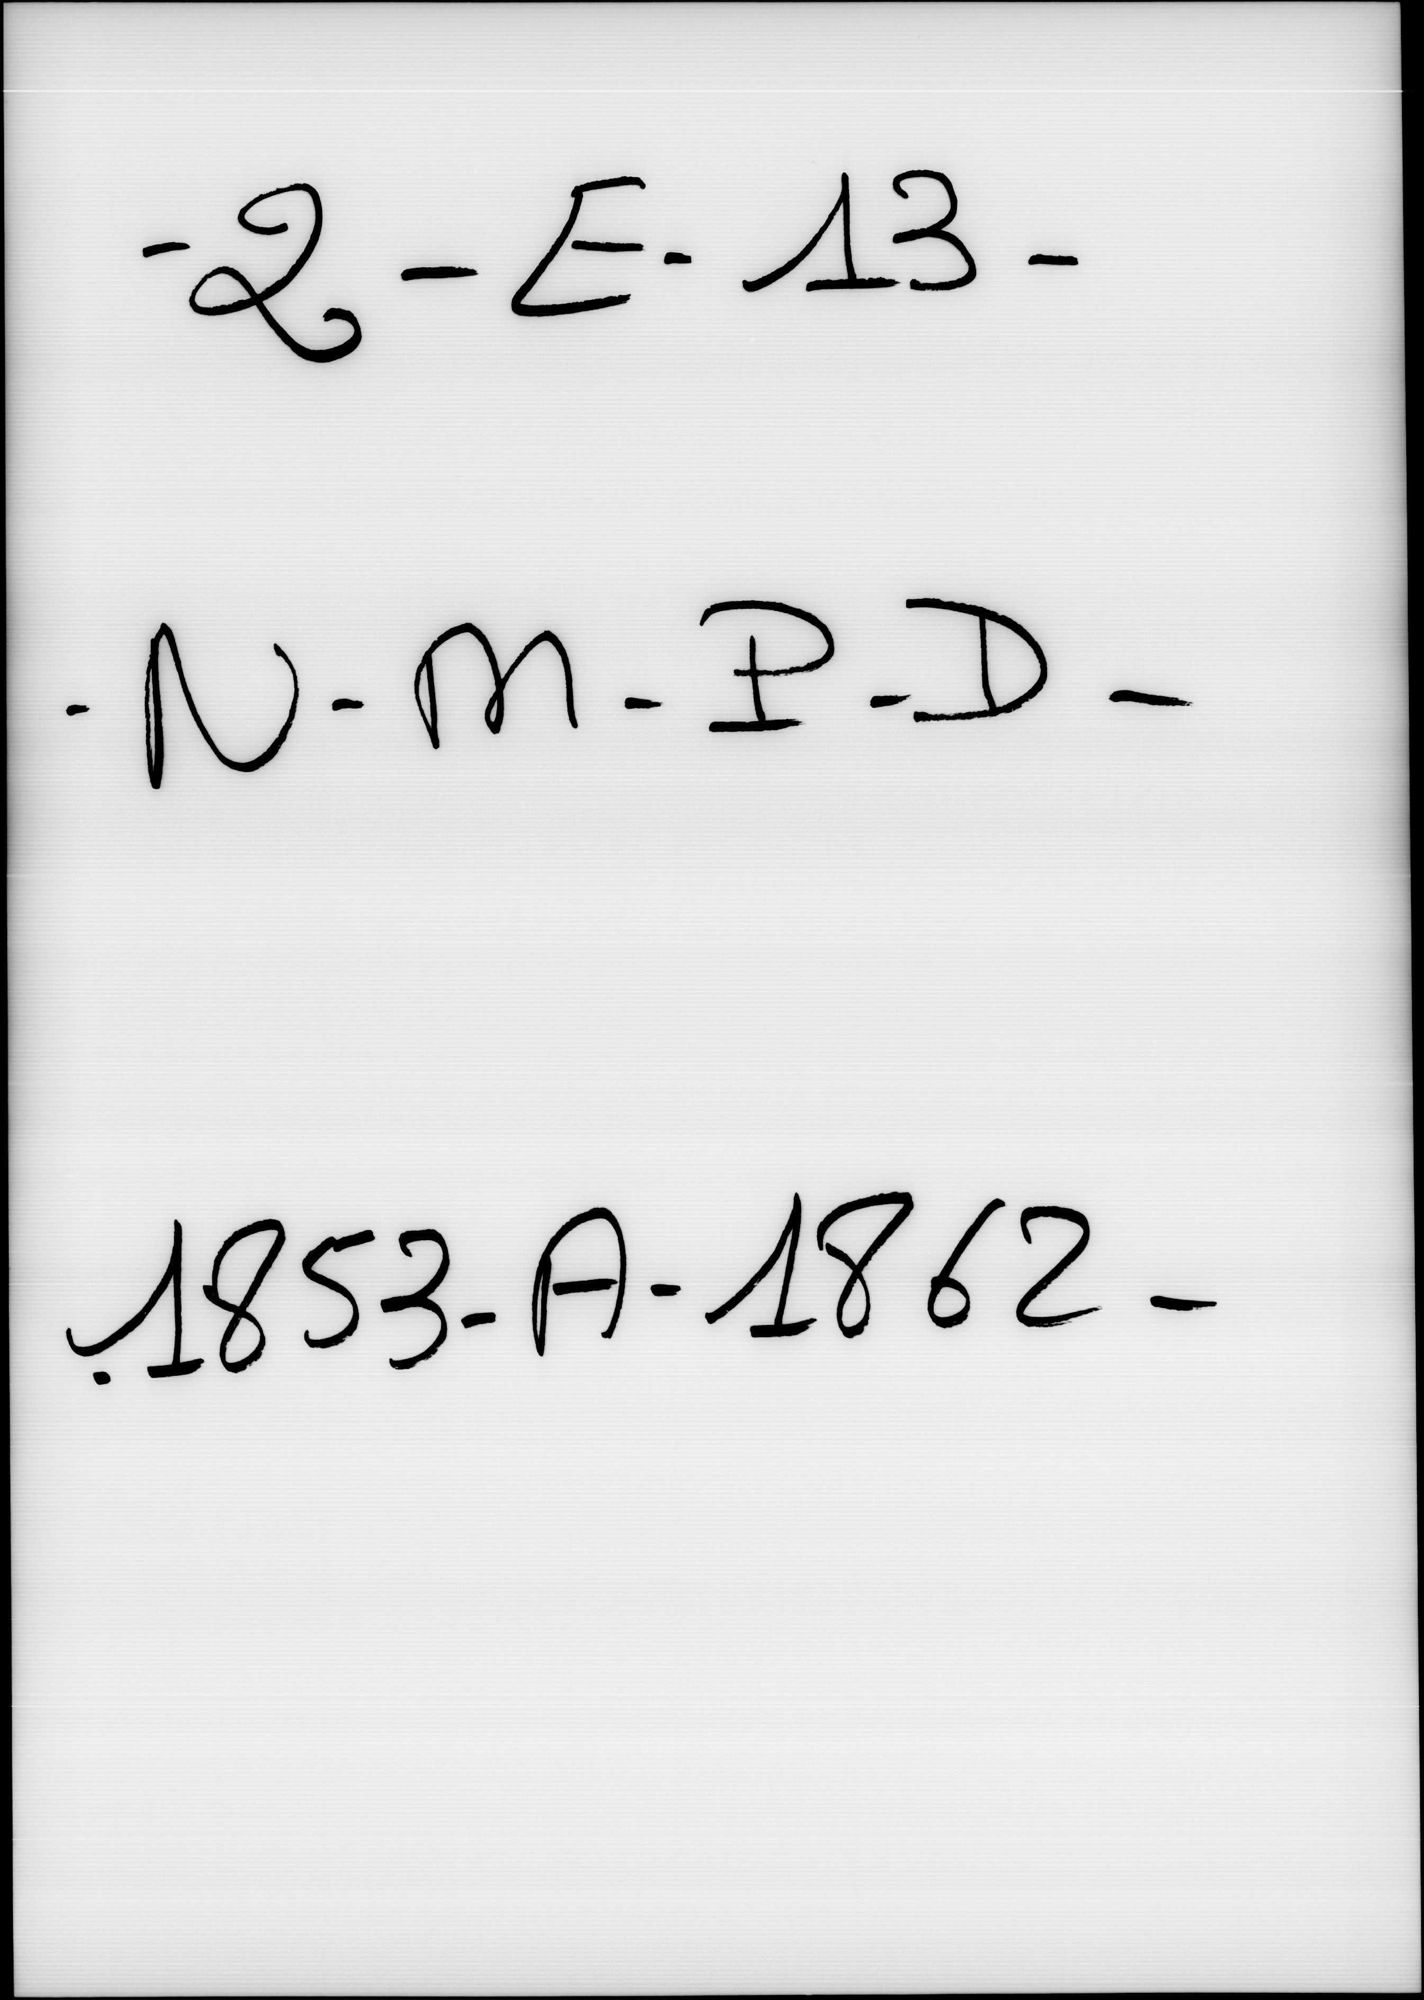 -2-E-13-
-N-M-P-D-
.1853-A-1862-